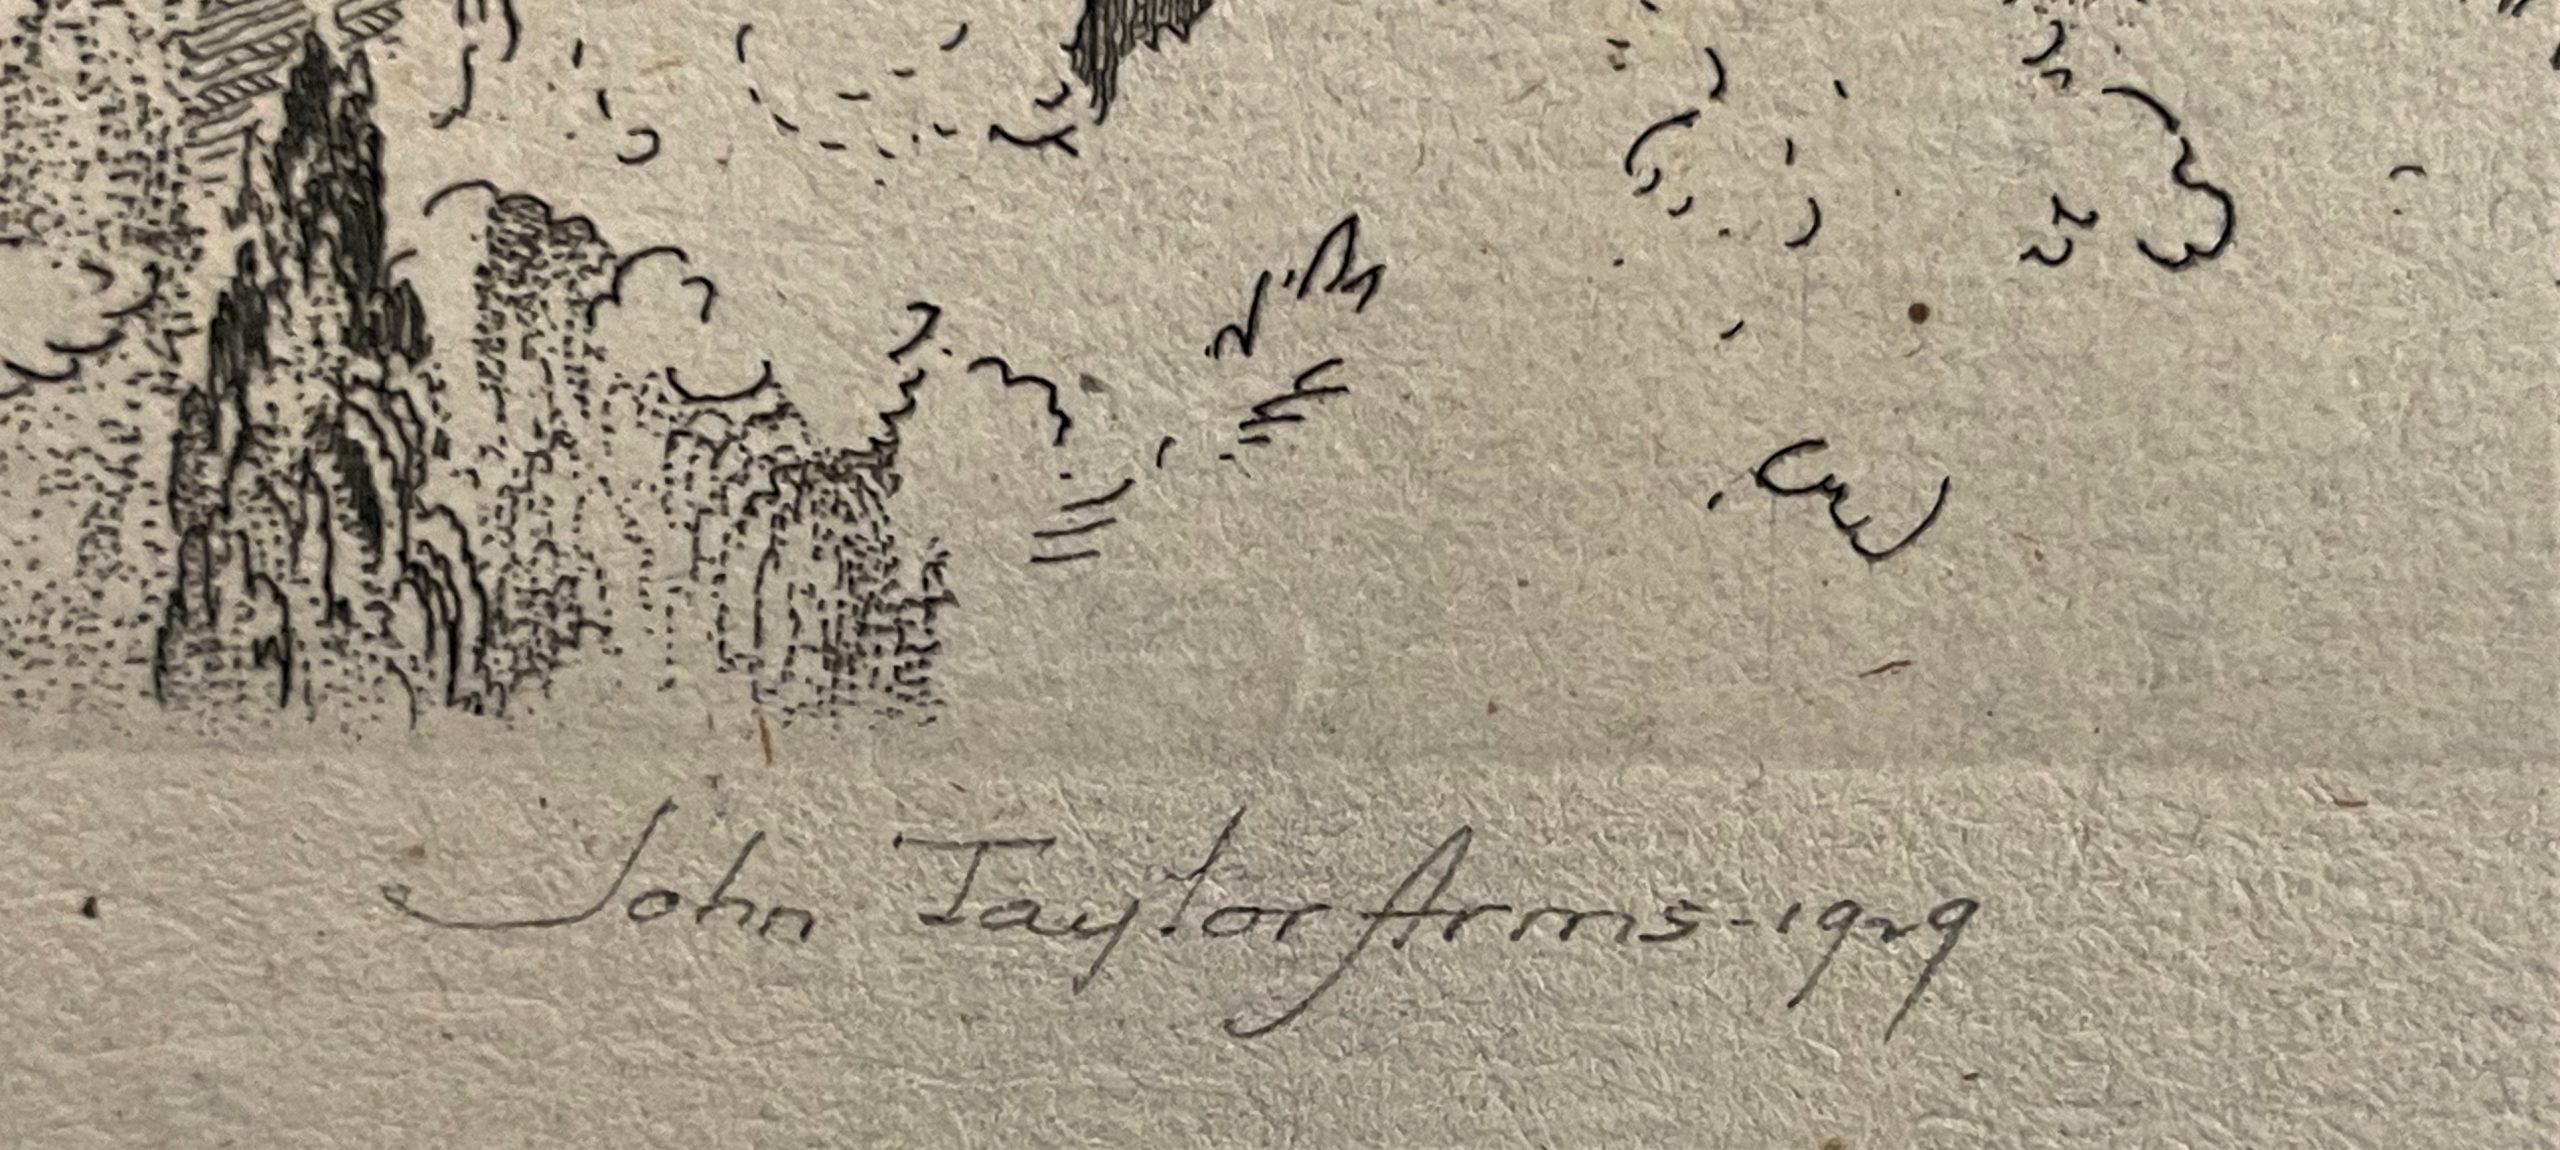 John Taylor Arms-1929